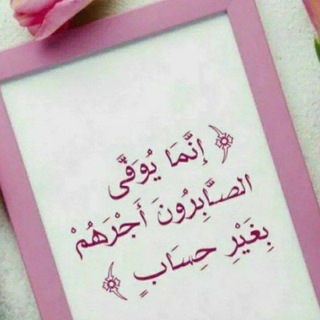 ﴿ إِنَّمَا يُوَفَّى
الصَّابِرُونَ أَجْرَهُمْ
بِغَيْرِ حِسَابٍ ﴾